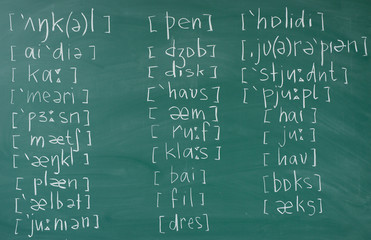 [ˈʌŋk(ə)l]
[aiˈdiə]
[kaː]
[ˈmeəri]
[ˈpɜːsn]
[mætʃ]
[ˈæŋkl]
[plæn]
[ˈælbət]
[ˈjuːmən]
[pen]
[dʒɒb]
[disk]
[ˈhaus]
[æm]
[ruːf]
[klaːs]
[bai]
[fil]
[dres]
[ˈhɒlidi]
[ˌju(ə)rəˈpiən]
[ˈstjuːdnt]
[ˈpjuːpl]
[hai]
[juː]
[hau]
[bɒks]
[æks]